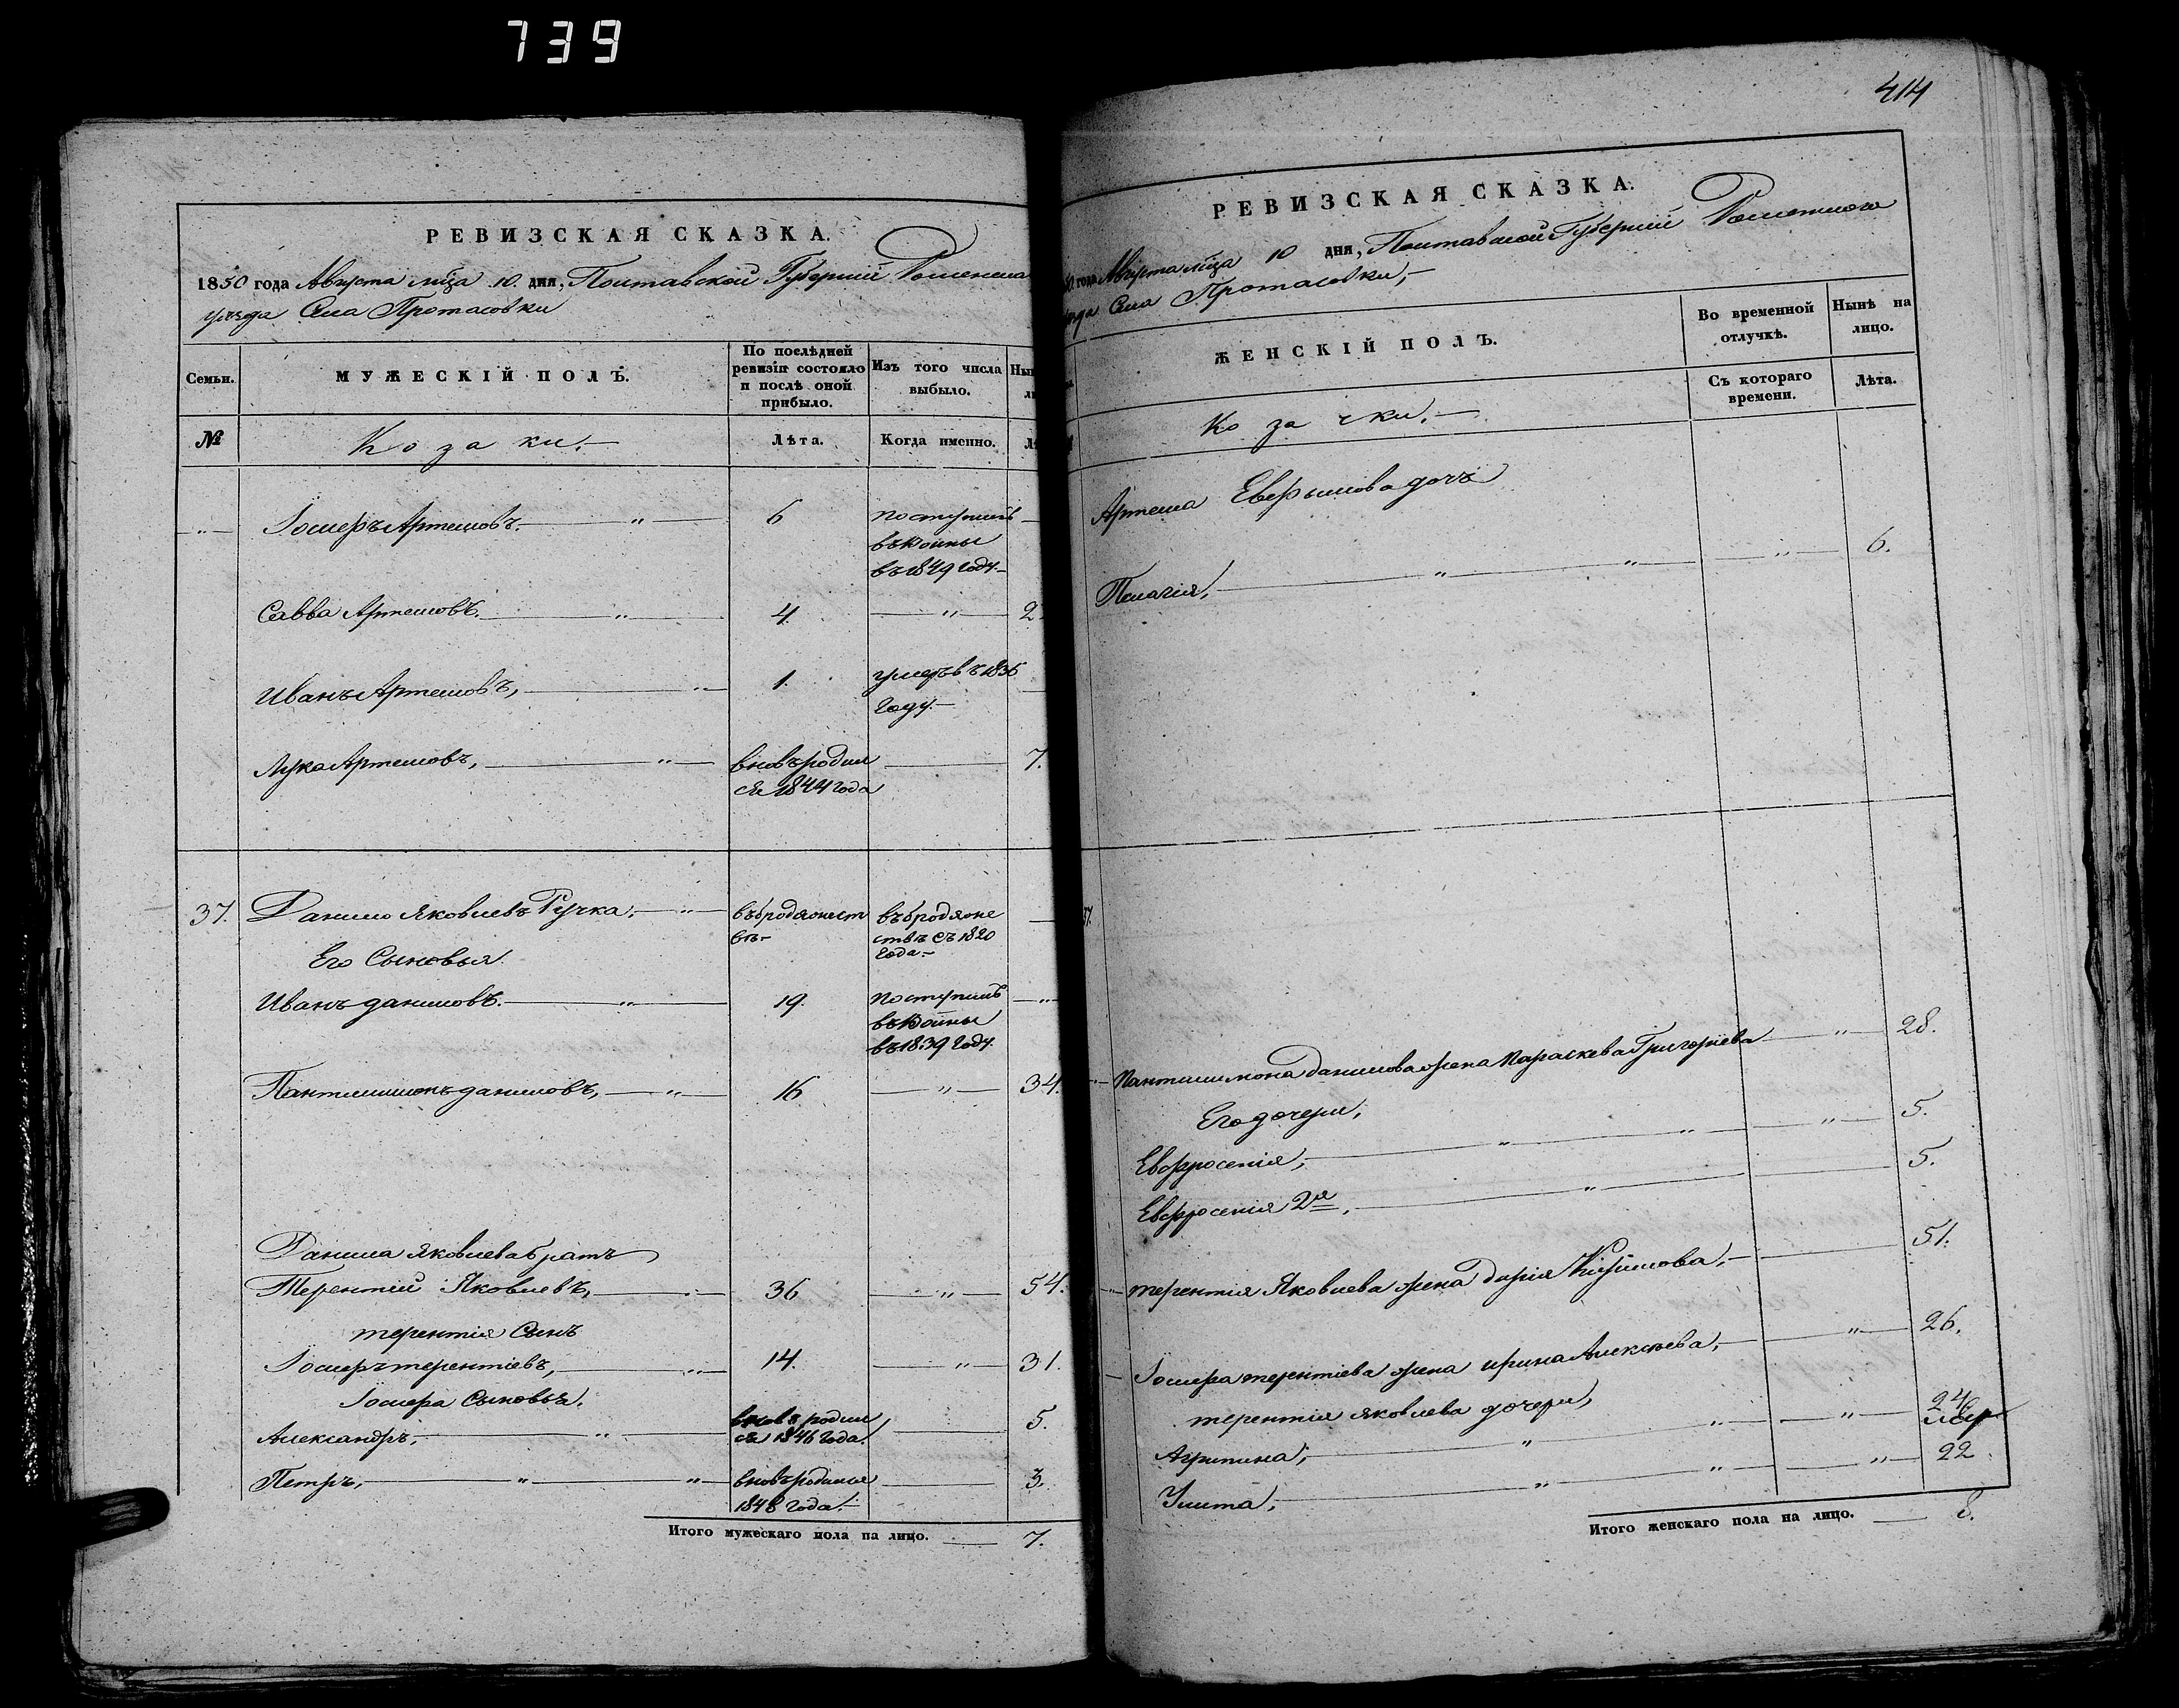 739
РЕВИЗСКАЯ СКАЗКА.
1850 года Августа мца 10. дня, Полтавской Губерніи Роменска
уѣзда Села Протасовки
Семьи.
МУЖЕСКІЙ ПОЛЪ.
По послѣдней
ревизіи состояло
и послѣ оной
прибыло.
Изъ того числа
выбыло.
№
Козаки.
Лѣта.
Когда именно.
Іосифъ Артемовъ. 6 поступилъ
въ войны
въ 1849 году.
Савва Артемовъ. 4. 2
Иванъ Артемовъ, 1. умеръ въ 1836
году.
Лука Артемовъ, вновь родил 7.
ся 1844 года
37. Данило Яковлевъ Ручка. въ бродяжест въ бродяже
вѣ ствѣ съ 1820
года.
Его Сыновья
Иванъ даниловъ. 19. поступилъ
въ войны
въ 1839 году.
Пантилимонъ даниловъ, 16 34.
Данила Яковлева братъ
Терентій Яковлевъ, 36 54.
терентія Сынъ
Іосифъ терентіевъ, 14. 31.
Іосифа Сыновья.
Александръ, вновь родил 5.
ся 1846 года.
Петръ, вновь родился 3.
1848 года.
Итого мужескаго пола на лицо. 7.
414
РЕВИЗСКАЯ СКАЗКА.
года Августа мца 10 дня, Полтавской Губерніи Роменского
Села Протасовки,
ЖЕНСКІЙ ПОЛЪ.
Во временной
отлучкѣ.
Нынѣ на
лицо.
Съ котораго
времени.
Лѣта.
Козачки.
Артема дочь
Пелагія, 6.
37.
Пантилимона данилова жена Параскева Григоріева 28.
Его дочери,
Евфросенія, 5.
Евфросенія 2я, 5.
терентія Яковлева жена Дарія Кирилова, 51.
Іосифа терентіева жена ирина Алексѣева, 26.
терентія яковлева дочери,
Агрипина, 24
Улита, 22
Итого женскаго пола на лицо. 8.